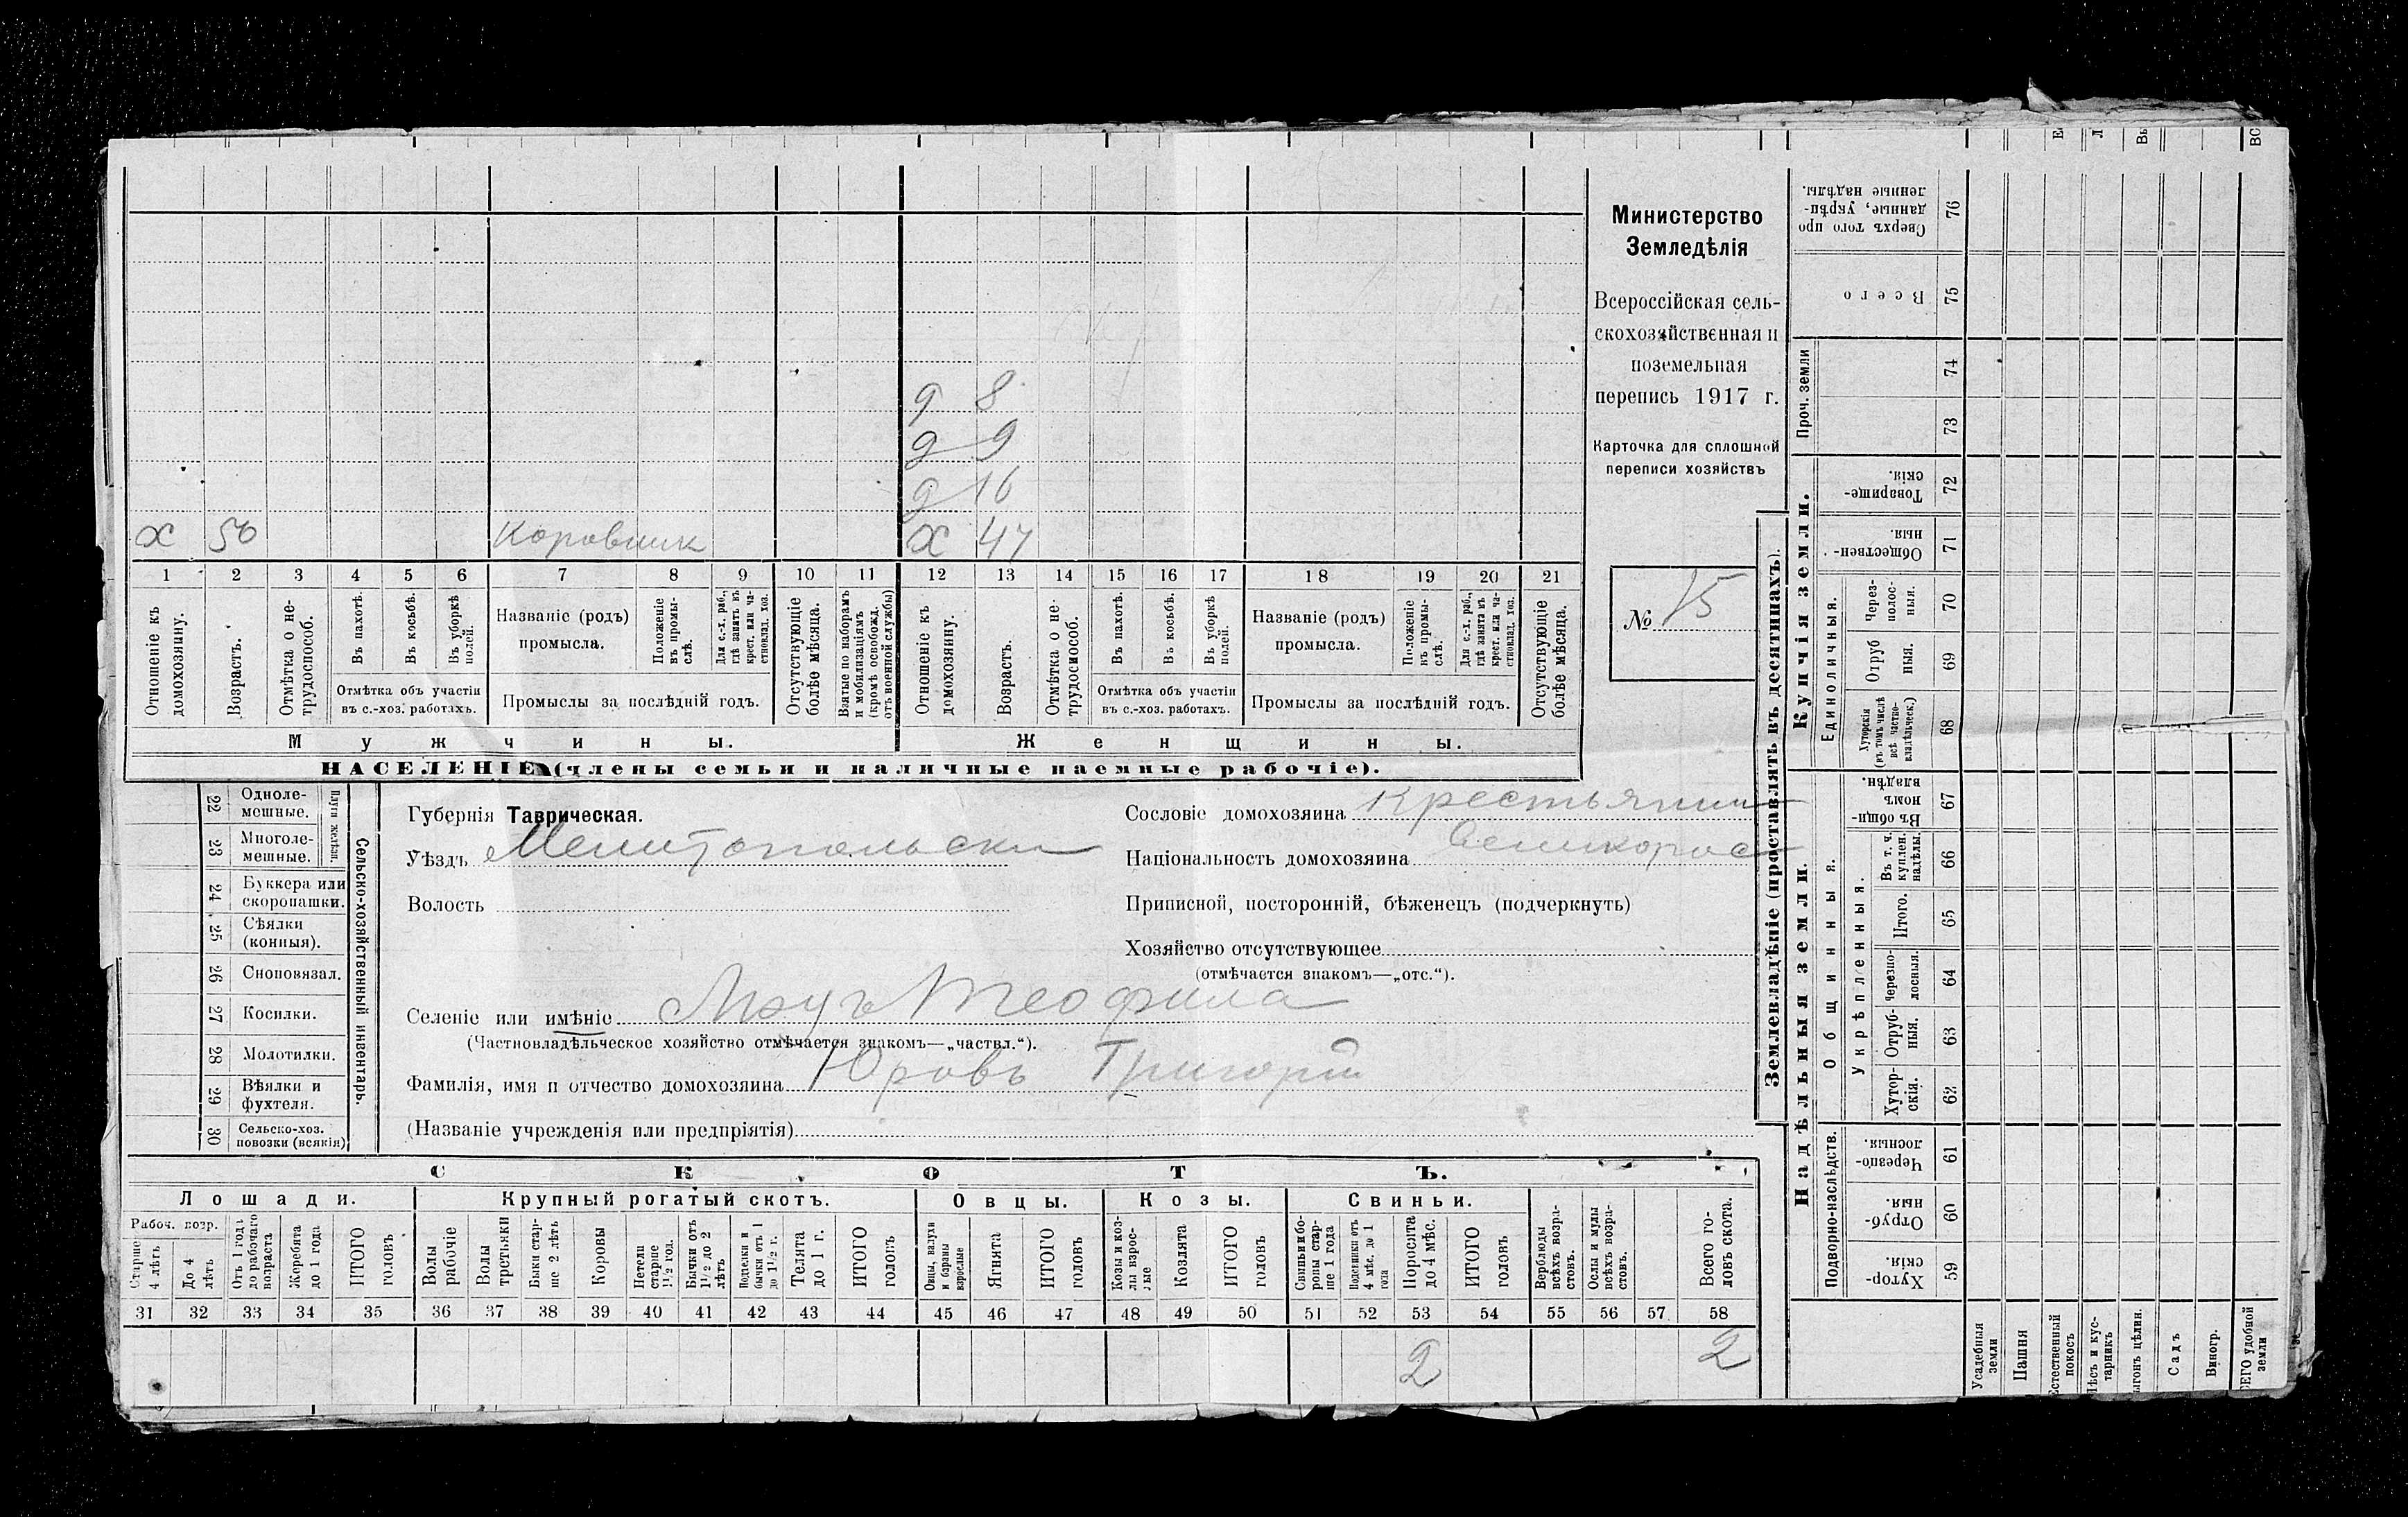 Министерство
Земледѣлія
Всероссійская сель-
скохозяйственная и
поземельная
перепись 1917 г.
Карточка для сплошной
переписи хозяйствъ
№ 15
д 8
д 9
д 16
х 50 Коровник х 47
1 2 3 4 5 6 7 8 9 10 11 12 13 14 15 16 17 18 19 20 21
Отношеніе къ домохозяину.
Возрастъ.
Отмѣтка о не-трудоспособ.
Въ пахотѣ.
Въ косьбѣ.
Въ уборкѣ полей.
Отмѣтка объ участіи
въ с.-хоз. работахъ.
Названіе (родъ)
промысла.
Положеніе въ промы-слѣ.
Для с.-х. раб., гдѣ занятъ въ крест. или ча-стновлад. хоз.
Промыслы за послѣдній годъ.
Отсутствующіе болѣе мѣсяца.
Взятые по наборамъ и мобилизаціямъ (кромѣ освобожд. отъ военной службы)
Отношеніе къ домохозяину.
Возрастъ.
Отмѣтка о не-трудоспособ.
Въ пахотѣ.
Въ косьбѣ.
Въ уборкѣ полей.
Отмѣтка объ участіи
въ с.-хоз. работахъ.
Названіе (родъ)
промысла.
Положеніе въ промы-слѣ.
Для с.-х. раб., гдѣ занята въ крест. или ча-стновлад. хоз.
Промыслы за послѣдній годъ.
Отсутствующіе болѣе мѣсяца.
Мужчины. Женщины.
НАСЕЛЕНІЕ (члены семьи и наличные наемные рабочіе).
22 Одноле-мешные.
23 Многоле-мешные.
Плуги желѣзн.
24 Буккера или скоропашки.
25 Сѣялки (конныя).
26 Сноповязал.
27 Косилки.
28 Молотилки.
29 Вѣялки и фухтеля.
30 Сельско-хоз. повозки (всякія)
Сельско-хозяйственный инвентарь.
Губернія Таврическая.
Уѣздъ Мелитопольски
Волость
Сословіе домохозяина Крестьянин
Національность домохозяина Великорос
Приписной, посторонній, бѣженецъ (подчеркнуть)
Хозяйство отсутствующее
(отмѣчается знакомъ—„отс.“).
Селеніе или имѣніе Теофила
(Частновладѣльческое хозяйство отмѣчается знакомъ—„частвл.“).
Фамилія, имя и отчество домохозяина Юровъ Григорій
(Названіе учрежденія или предпріятія)
СКОТЪ.
Лошади. Крупный рогатый скотъ. Овцы. Козы. Свиньи.
Рабоч. возр.
Старше 4 лѣтъ
До 4 лѣтъ
Отъ 1 года до рабочаго возраста
Жеребята до 1 года
ИТОГО головъ
Волы рабочіе
Волы третьяки
Быки стар-ше 2 лѣтъ
Коровы
Нетели старше 1 1/2 год.
Бычки отъ 1 1/2 до 2 лѣтъ
Подтелки и бычки отъ 1 до 1 1/2 г.
Телята до 1 г.
ИТОГО головъ
Овцы, валухи и бараны взрослые
Ягнята
ИТОГО головъ
Козы и коз-лы взрос-лые
Козлята
ИТОГО головъ
Свиньи и бо-ровы стар-ше 1 года
Подсвинки отъ 4 мѣс. до 1 года
Поросята до 4 мѣс.
ИТОГО головъ
Верблюды всѣхъ возра-стовъ.
Ослы и мулы всѣхъ возра-стовъ.
Всего го-ловъ скота.
31 32 33 34 35 36 37 38 39 40 41 42 43 44 45 46 47 48 49 50 51 52 53 54 55 56 57 58
2 2
Землевладѣніе (проставлять въ десятинахъ).
Купчія земли.
Надѣльныя земли.
Сверхъ того про-данные, укрѣп-ленные надѣлы. 76
Всего 75
Проч. земли
74
73
Товарище-скія. 72
Обществен-ныя. 71
Единоличныя.
Через-полос-ныя. 70
Отруб-ныя. 69
Хуторскія (въ томъ числѣ всѣ частно-владѣльческ.) 68
Въ общи-номъ владѣн. 67
Общинныя.
Укрѣпленныя.
Въ т. ч. куплен. надѣлы. 66
Итого. 65
Черезпо-лосныя. 64
Отруб-ныя. 63
Хутор-скія. 62
Подворно-наслѣдств.
Черезпо-лосныя. 61
Отруб-ныя. 60
Хутор-скія. 59
Усадебныя земли
Пашня
Естественный покосъ
Лѣсъ и кус-тарникъ
ыгонъ цѣлин.
Садъ
Виногр.
СЕГО удобной земли